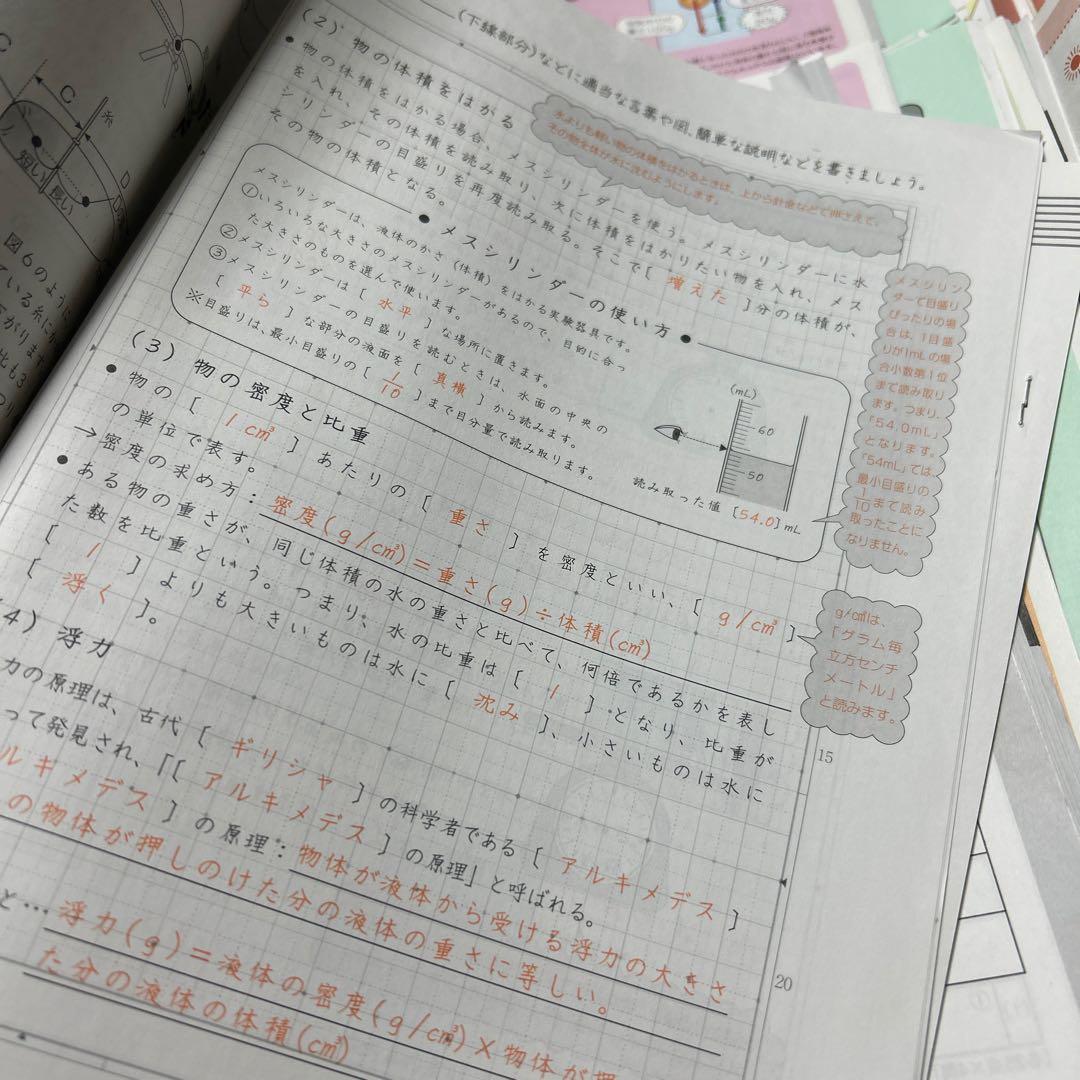 (下線部分)などに適当な言葉や図、簡単な説明などを書きましょう。
(2) 物の体積をはかる
● 物の体積をはかる場合、メスシリンダーを使う。メスシリンダーに水
を入れ、その体積を読み取り、次に体積をはかりたい物を入れ、メス
シリンダーの目盛りを再度読み取る。そこで[ 増えた ]分の体積が、
その物の体積となる。
水よりも軽い物の体積をはかるときは、上から針金などで押さえて、
その物全体が水に沈むようにします。
● メスシリンダーの使い方 ●
メスシリンダーは、液体のかさ(体積)をはかる実験器具です。
①いろいろな大きさのメスシリンダーがあるので、目的に合っ
た大きさのものを選んで使います。
②メスシリンダーは[ 水平 ]な場所に置きます。
③メスシリンダーの目盛りを読むときは、水面の中央の
[ 平ら ]な部分の液面を[ 真横 ]から読みます。
※目盛りは、最小目盛りの[ 1/10 ]まで目分量で読み取ります。
(mL)
60
50
読み取った値[54.0]mL
メスシリン
ダーで目盛り
ぴったりの場
合は、1目盛
りが1mLの場
合小数第1位
まで読み取り
ます。つまり、
「54.0mL」
となります。
「54mL」では、
最小目盛りの
1/10まで読み
取ったことに
なりません。
(3) 物の密度と比重
● 物の[ 1cm³ ]あたりの[ 重さ ]を密度といい、[ g/cm³ ]
の単位で表す。
→密度の求め方:密度(g/cm³)=重さ(g)÷体積(cm³)
● ある物の重さが、同じ体積の水の重さと比べて、何倍であるかを表し
た数を比重という。つまり、水の比重は[ 1 ]となり、比重が
[ 1 ]よりも大きいものは水に[ 沈み ]、小さいものは水に
[ 浮く ]。
g/cm³は、
「グラム毎
立方センチ
メートル」
と読みます。
15
4) 浮力
力の原理は、古代[ ギリシャ ]の科学者である[ アルキメデス ]
って発見され、「[ アルキメデス ]の原理」と呼ばれる。
ルキメデス ]の原理:物体が液体から受ける浮力の大きさ
の物体が押しのけた分の液体の重さに等しい。
20
と…浮力(g)=液体の密度(g/cm³)×物体が押
た分の液体の体積(cm³)
C
C
糸
D
短い
長い
図6のように
ている糸に
がります
比も3